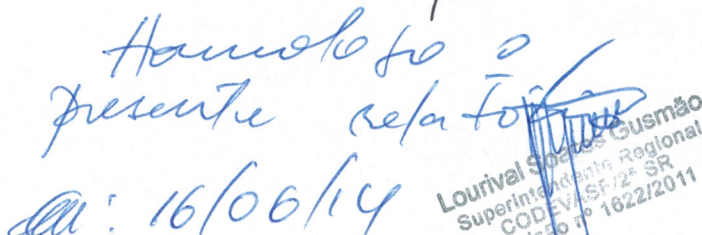 Homologo o
presente relatório
Em: 16/06/14
Lourival Soares Gusmão
Superintendente Regional
CODEVASF/2ª SR
nº 1622/2011